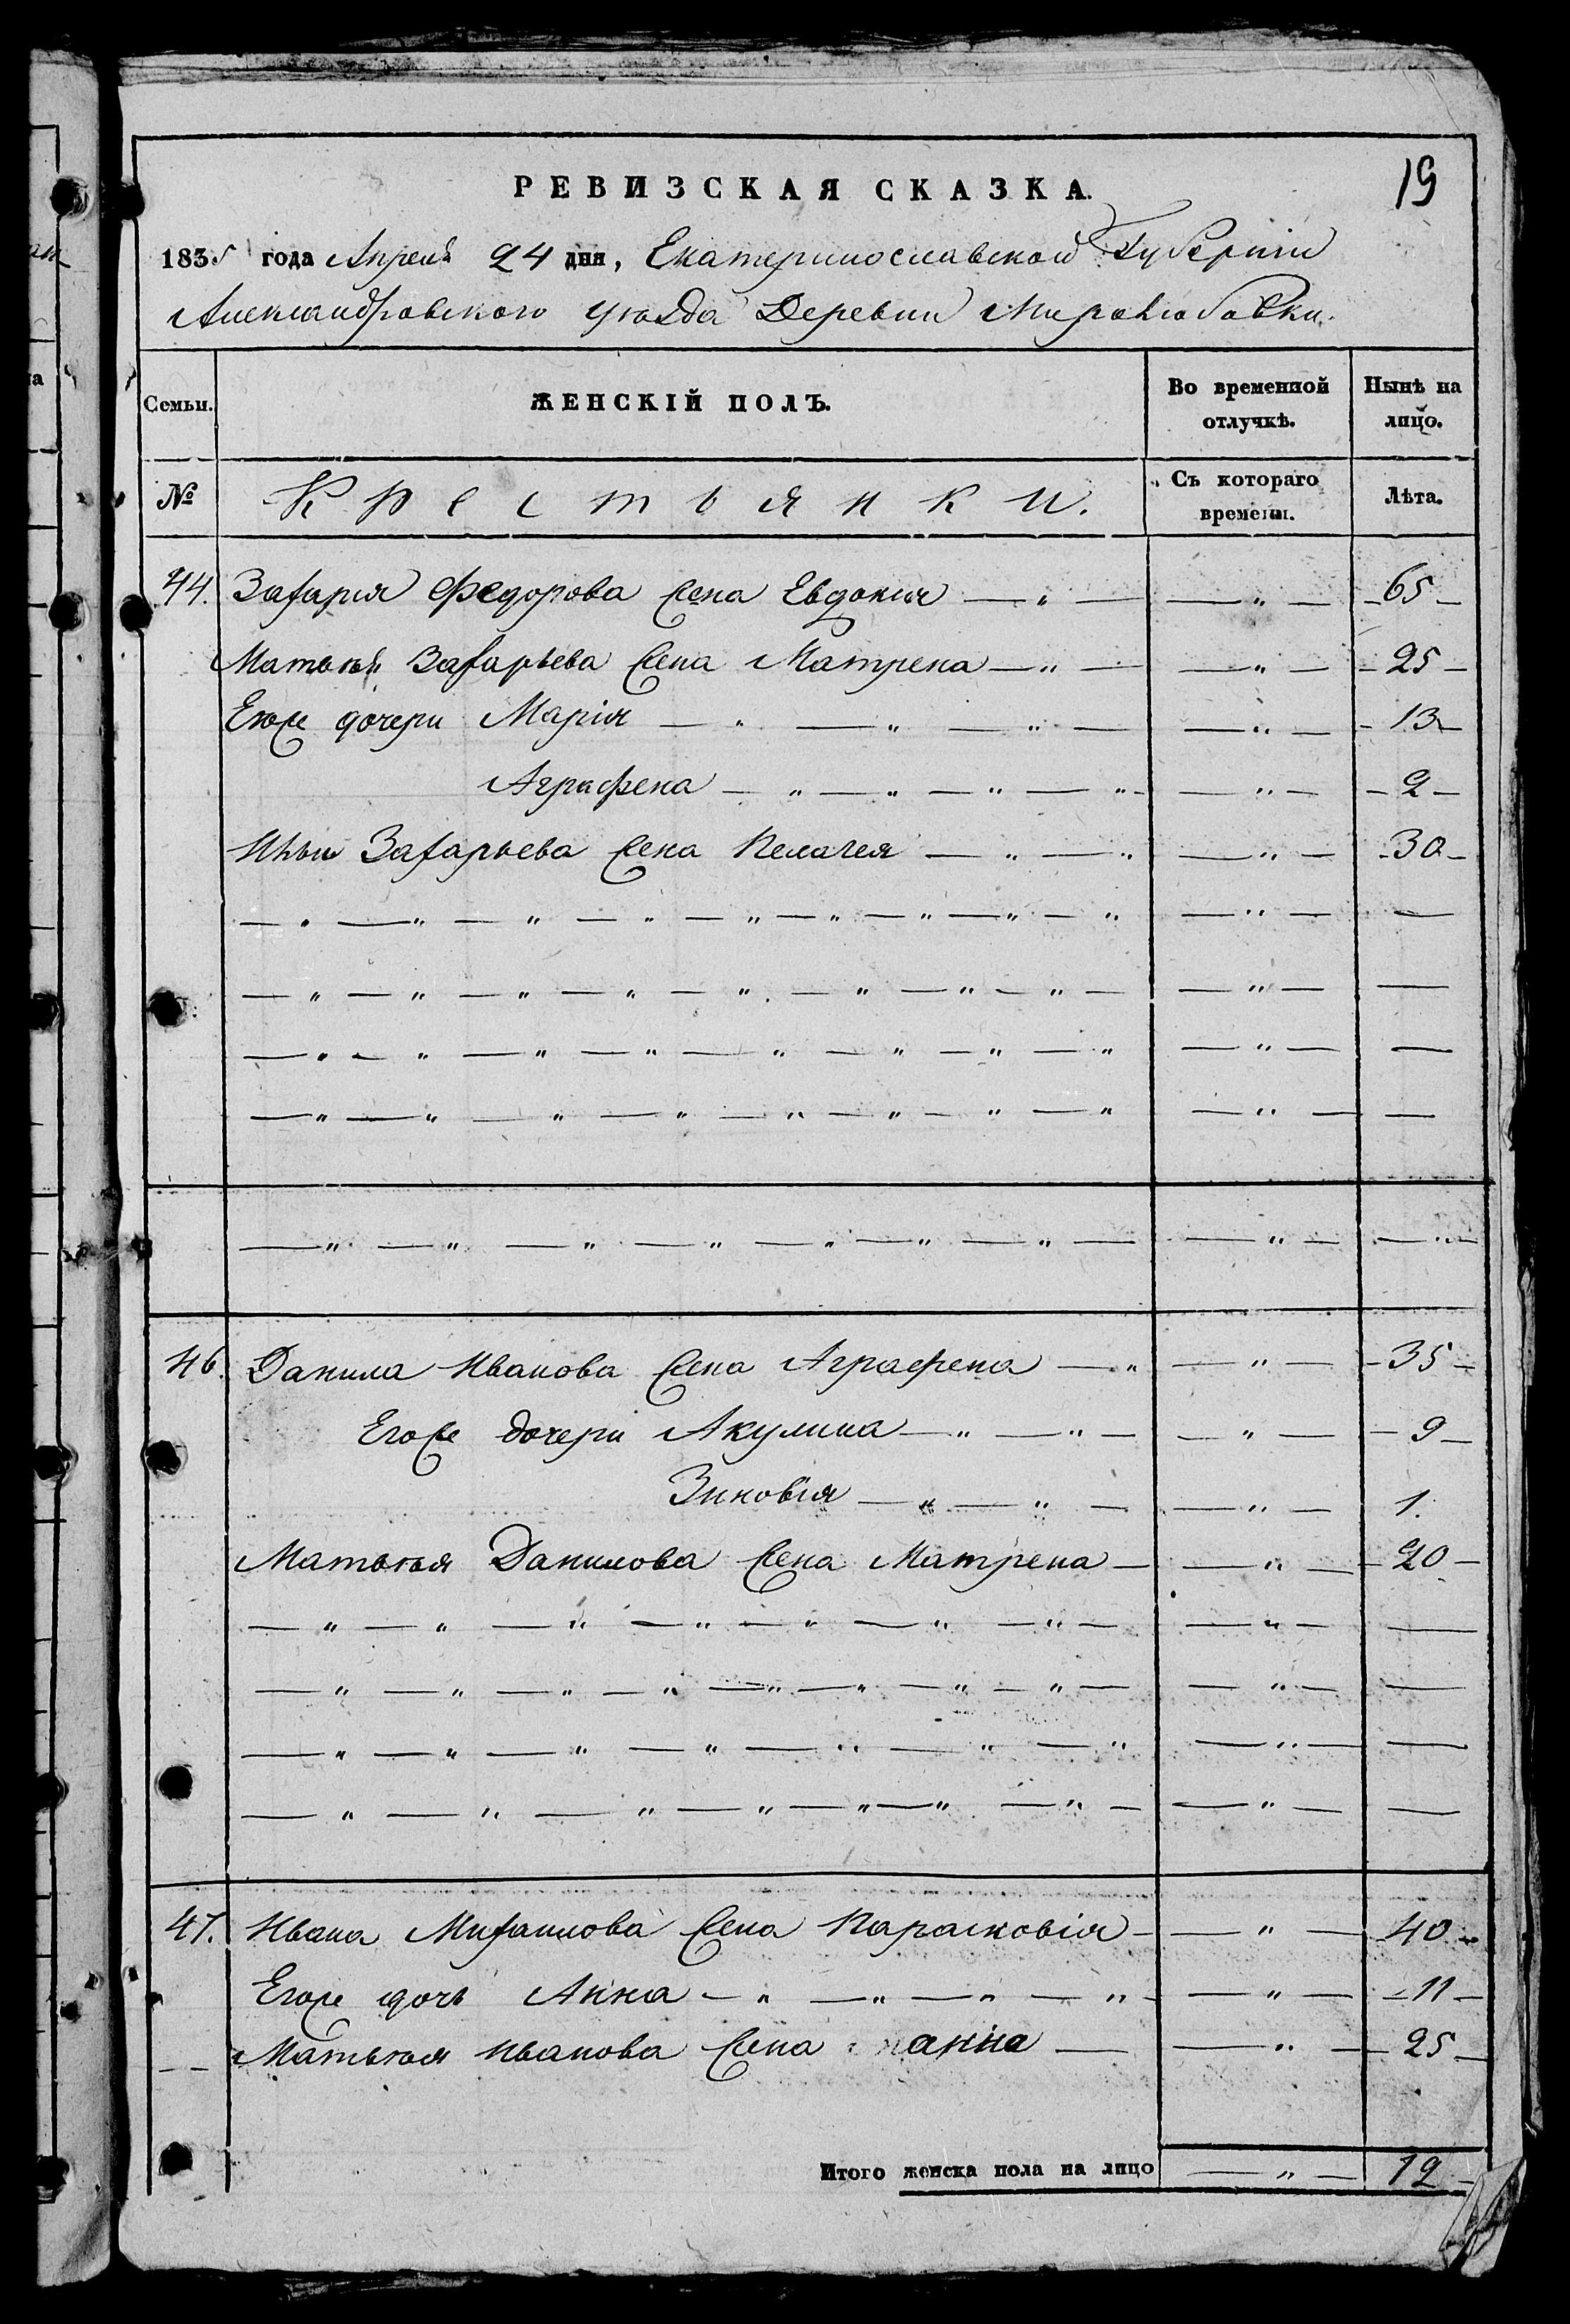 19
РЕВИЗСКАЯ СКАЗКА.
1835 года Апреля 24 дня, Екатеринославской Губернии
Александровского уезда Деревни Миролюбовки.
Семьи. ЖЕНСКІЙ ПОЛЪ. Во временной отлучкѣ. Нынѣ на лицо.
№ Крестьянки. Съ котораго времени. Лѣта.
44. Захария Федорова жена Евдокия — " — — " — 65
Матвея Захарьева жена Матрена — " — — " — 25
Егоже дочери Мария — " — " — " — — " — 13
Аграфена — " — " — " — " — — " — 2
Ильи Захарьева жена Пелагея — " — " — " — 30
46. Данила Иванова жена Аграфена — " — " — 35
Егоже дочери Акулина — " — " — — " — 9
Зиновія — " — " — — " — 1.
Матвея Данилова жена Матрена — — " — 20
47. Ивана Михайлова жена Парасковія — — " — 40
Егоже дочь Анна — " — " — " — " — — " — 11
Матвея Иванова жена анна — — " — 25
Итого женска пола на лицо — " — 12